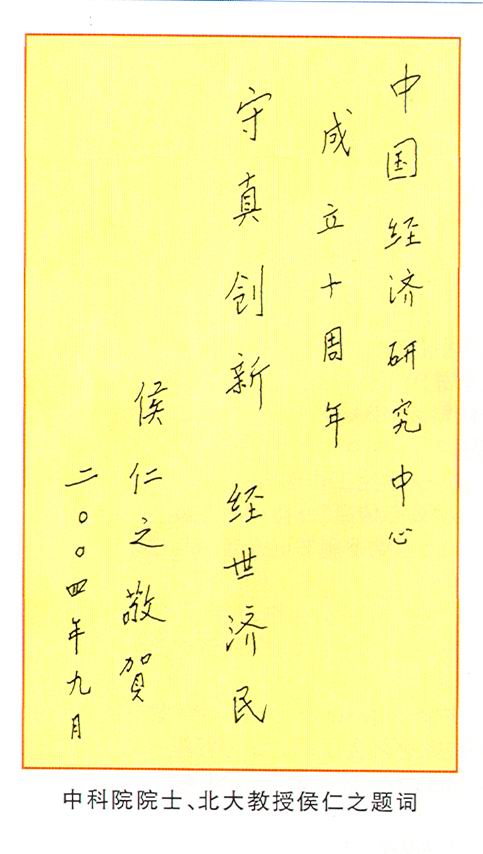 中国经济研究中心
成立十周年
守真创新 经世济民
侯仁之敬贺
二〇〇四年九月
中科院院士、北大教授侯仁之题词